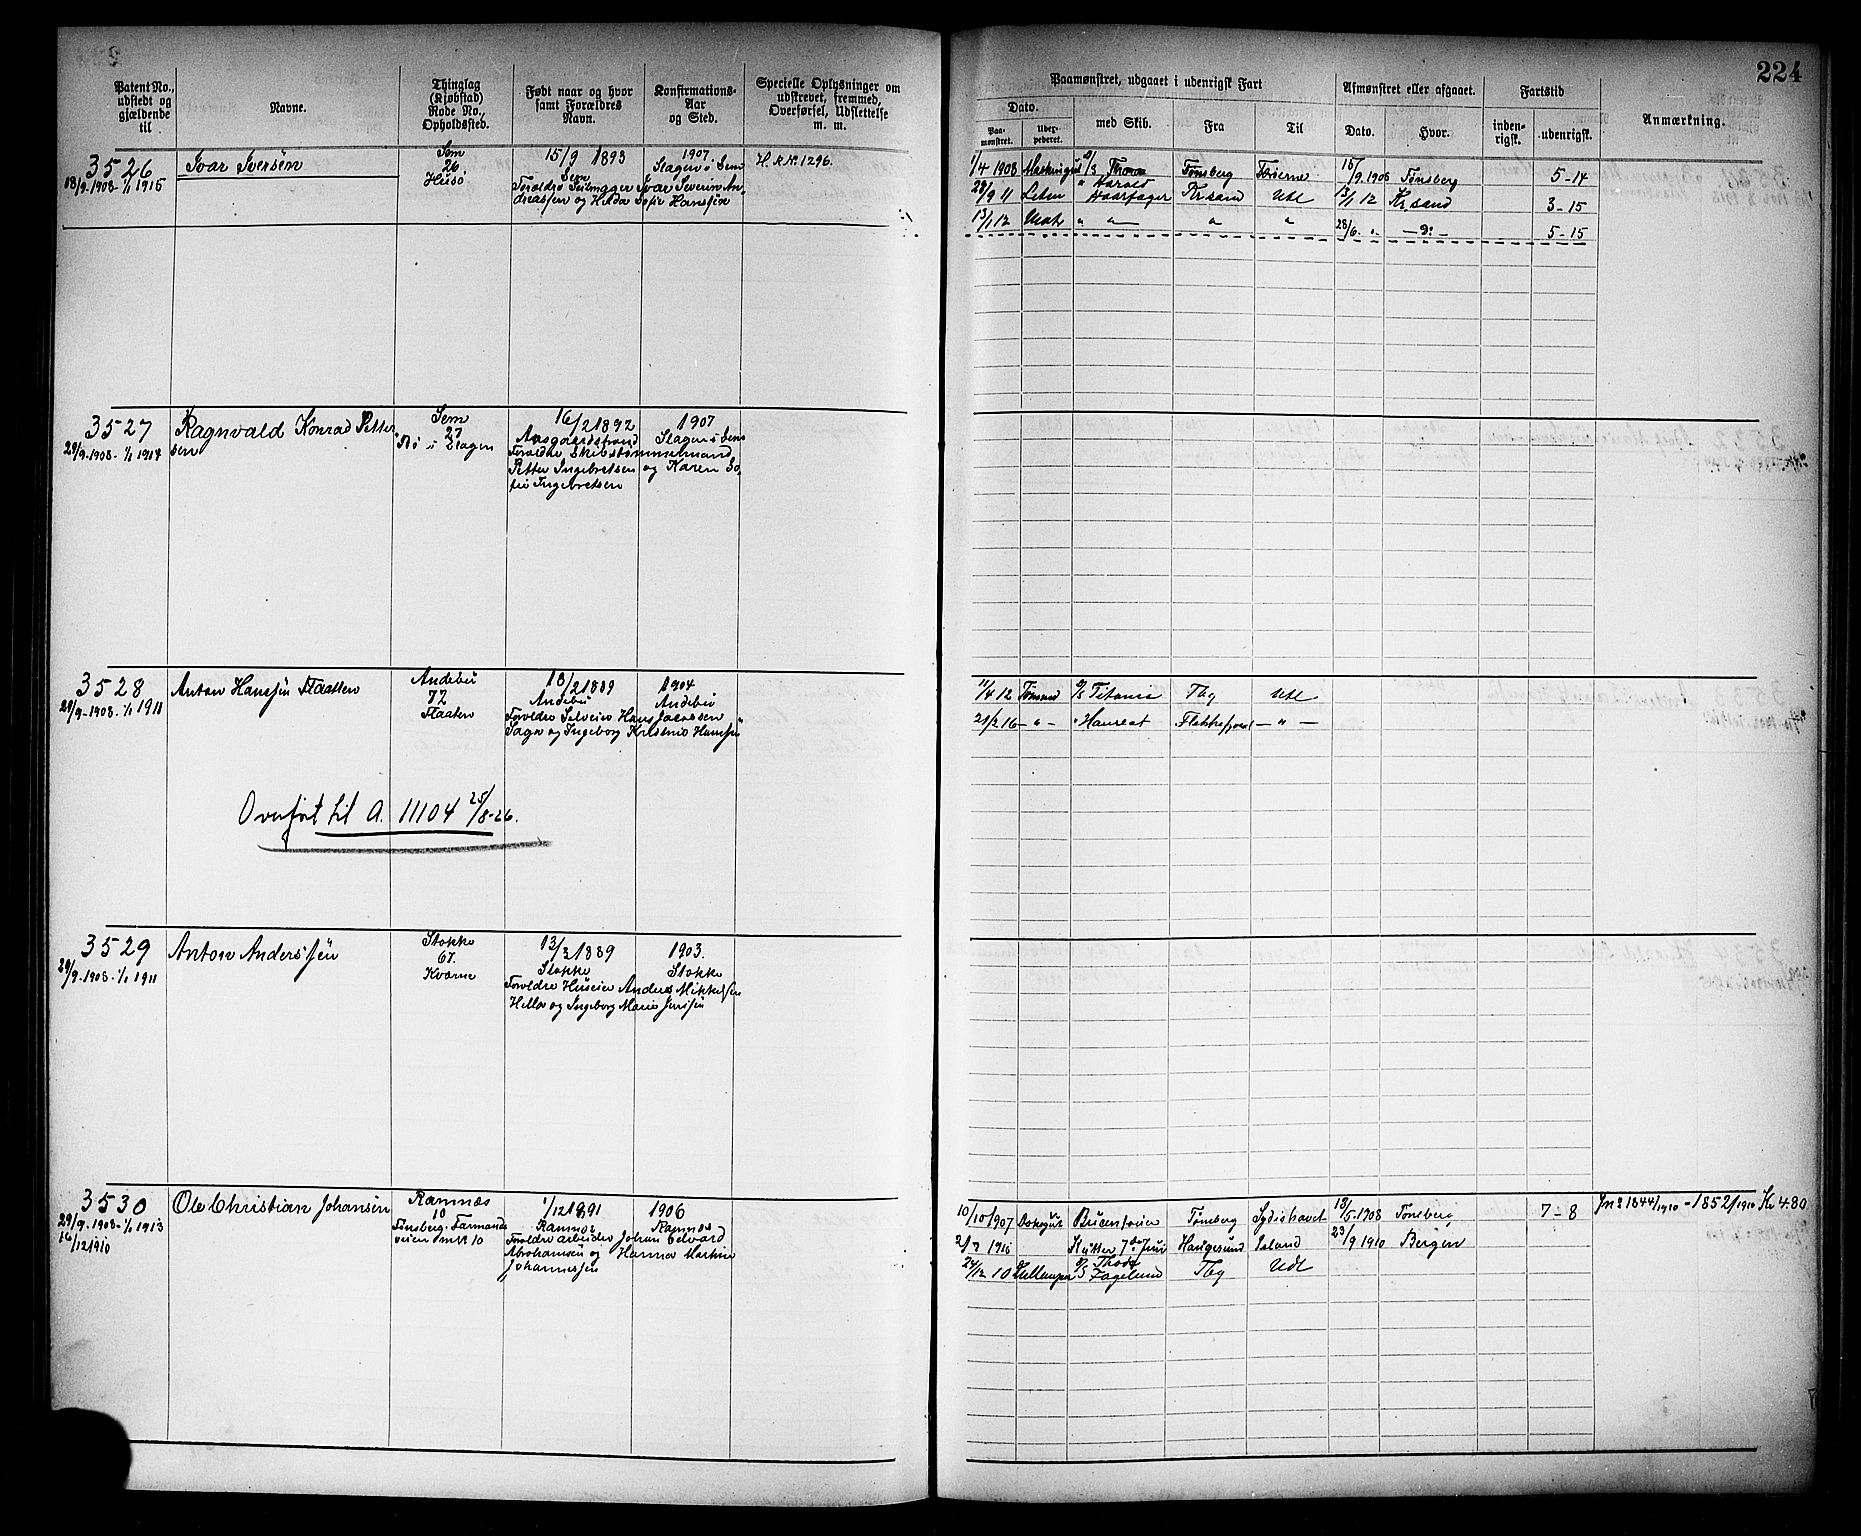 224
Patent No., udstedt og gjældende til
Navne.
Thinglag (Kjøbstad) Rode No., Opholdssted.
Født naar og hvor samt Forældres Navn.
Konfirmations-Aar og Sted.
Specielle Oplysninger om udstrevet, fremmed, Overførsel, Udslettelse m. m.
Paamønstret, udgaaet i udenrigsk Fart
Dato.
Paa-mønstret.
med Skib.
Fra
Til
Afmønstret eller afgaaet.
Dato.
Hvor.
Fartstid
inden-rigsk.
udenrigsk.
Anmærkning.
3526
18/9-1908-1/1 1915
Ivar Iversen
Sem
26
Husø
15/9 1893
Sem
1907.
Slagen i Sem
Forældre Seilmager Ivar Severin An-
dreassen og Hilda Sofie Hanssen
H. R. Nº 1296.
1/4 1908
Tønsberg
15/9 1908 Tønsberg
5-14
28/9 11
Harald
Haarfager
Kr.sand
Udl
13/1 12
Kr.sand
3-15
13/1 12
" "
"
"
28/6 "
5-15
3527
29/9-1908-1/1 1914
Ragnvald Konrad Petter
sen
Sem
27
Bø i Slagen
16/2 1892
Aasgaardstrand
1907
Slagen i Sem
Forældre Skibstømmermand
Petter Ingebretsen og Karen So-
fie Ingebretsen
3528
29/9-1908-1/1 1911
Anton Hanssen Flaatten
Andebu
72
Flaaten
18/2 1889
Andebu
1904
Andebu
Forældre Selveier Hans Jacobsen
Saga og Ingeborg Kristine Hanssen
11/4 12
Titania
Tbg
Udl
21/2 16
Flekkefjord
- " -
Overført til A. 11104 25/8-26.
3529
29/9-1908-1/1 1911
Anton Anderssen
Stokke
67.
Kvarne
13/3 1889
Stokke
1903.
Stokke
Forældre Huseier Anders Mikkelsen
Hella og Ingeborg Marie Jenssen
3530
29/9-1908-1/1 1913
16/12 1910
Ole Christian Johansen
Ramnæs
10
Tønsberg Farmands
veien m.R 10
1/12 1891
Ramnæs
1906
Ramnæs
Forældre arbeider Johan Edvard
Abrahamsen og Hanna Martine
Johannessen
10/10 1907
Tønsberg
Sydishavet
13/5-1908 Tønsberg
7-8
Jnº 1844/1910 - 1852/1910 Kr 4.80
Kutter 7de Juni
Haugesund
Island
23/9 1910
Bergen
24/12 10
Thode
Fagelund
Tbg
Udl